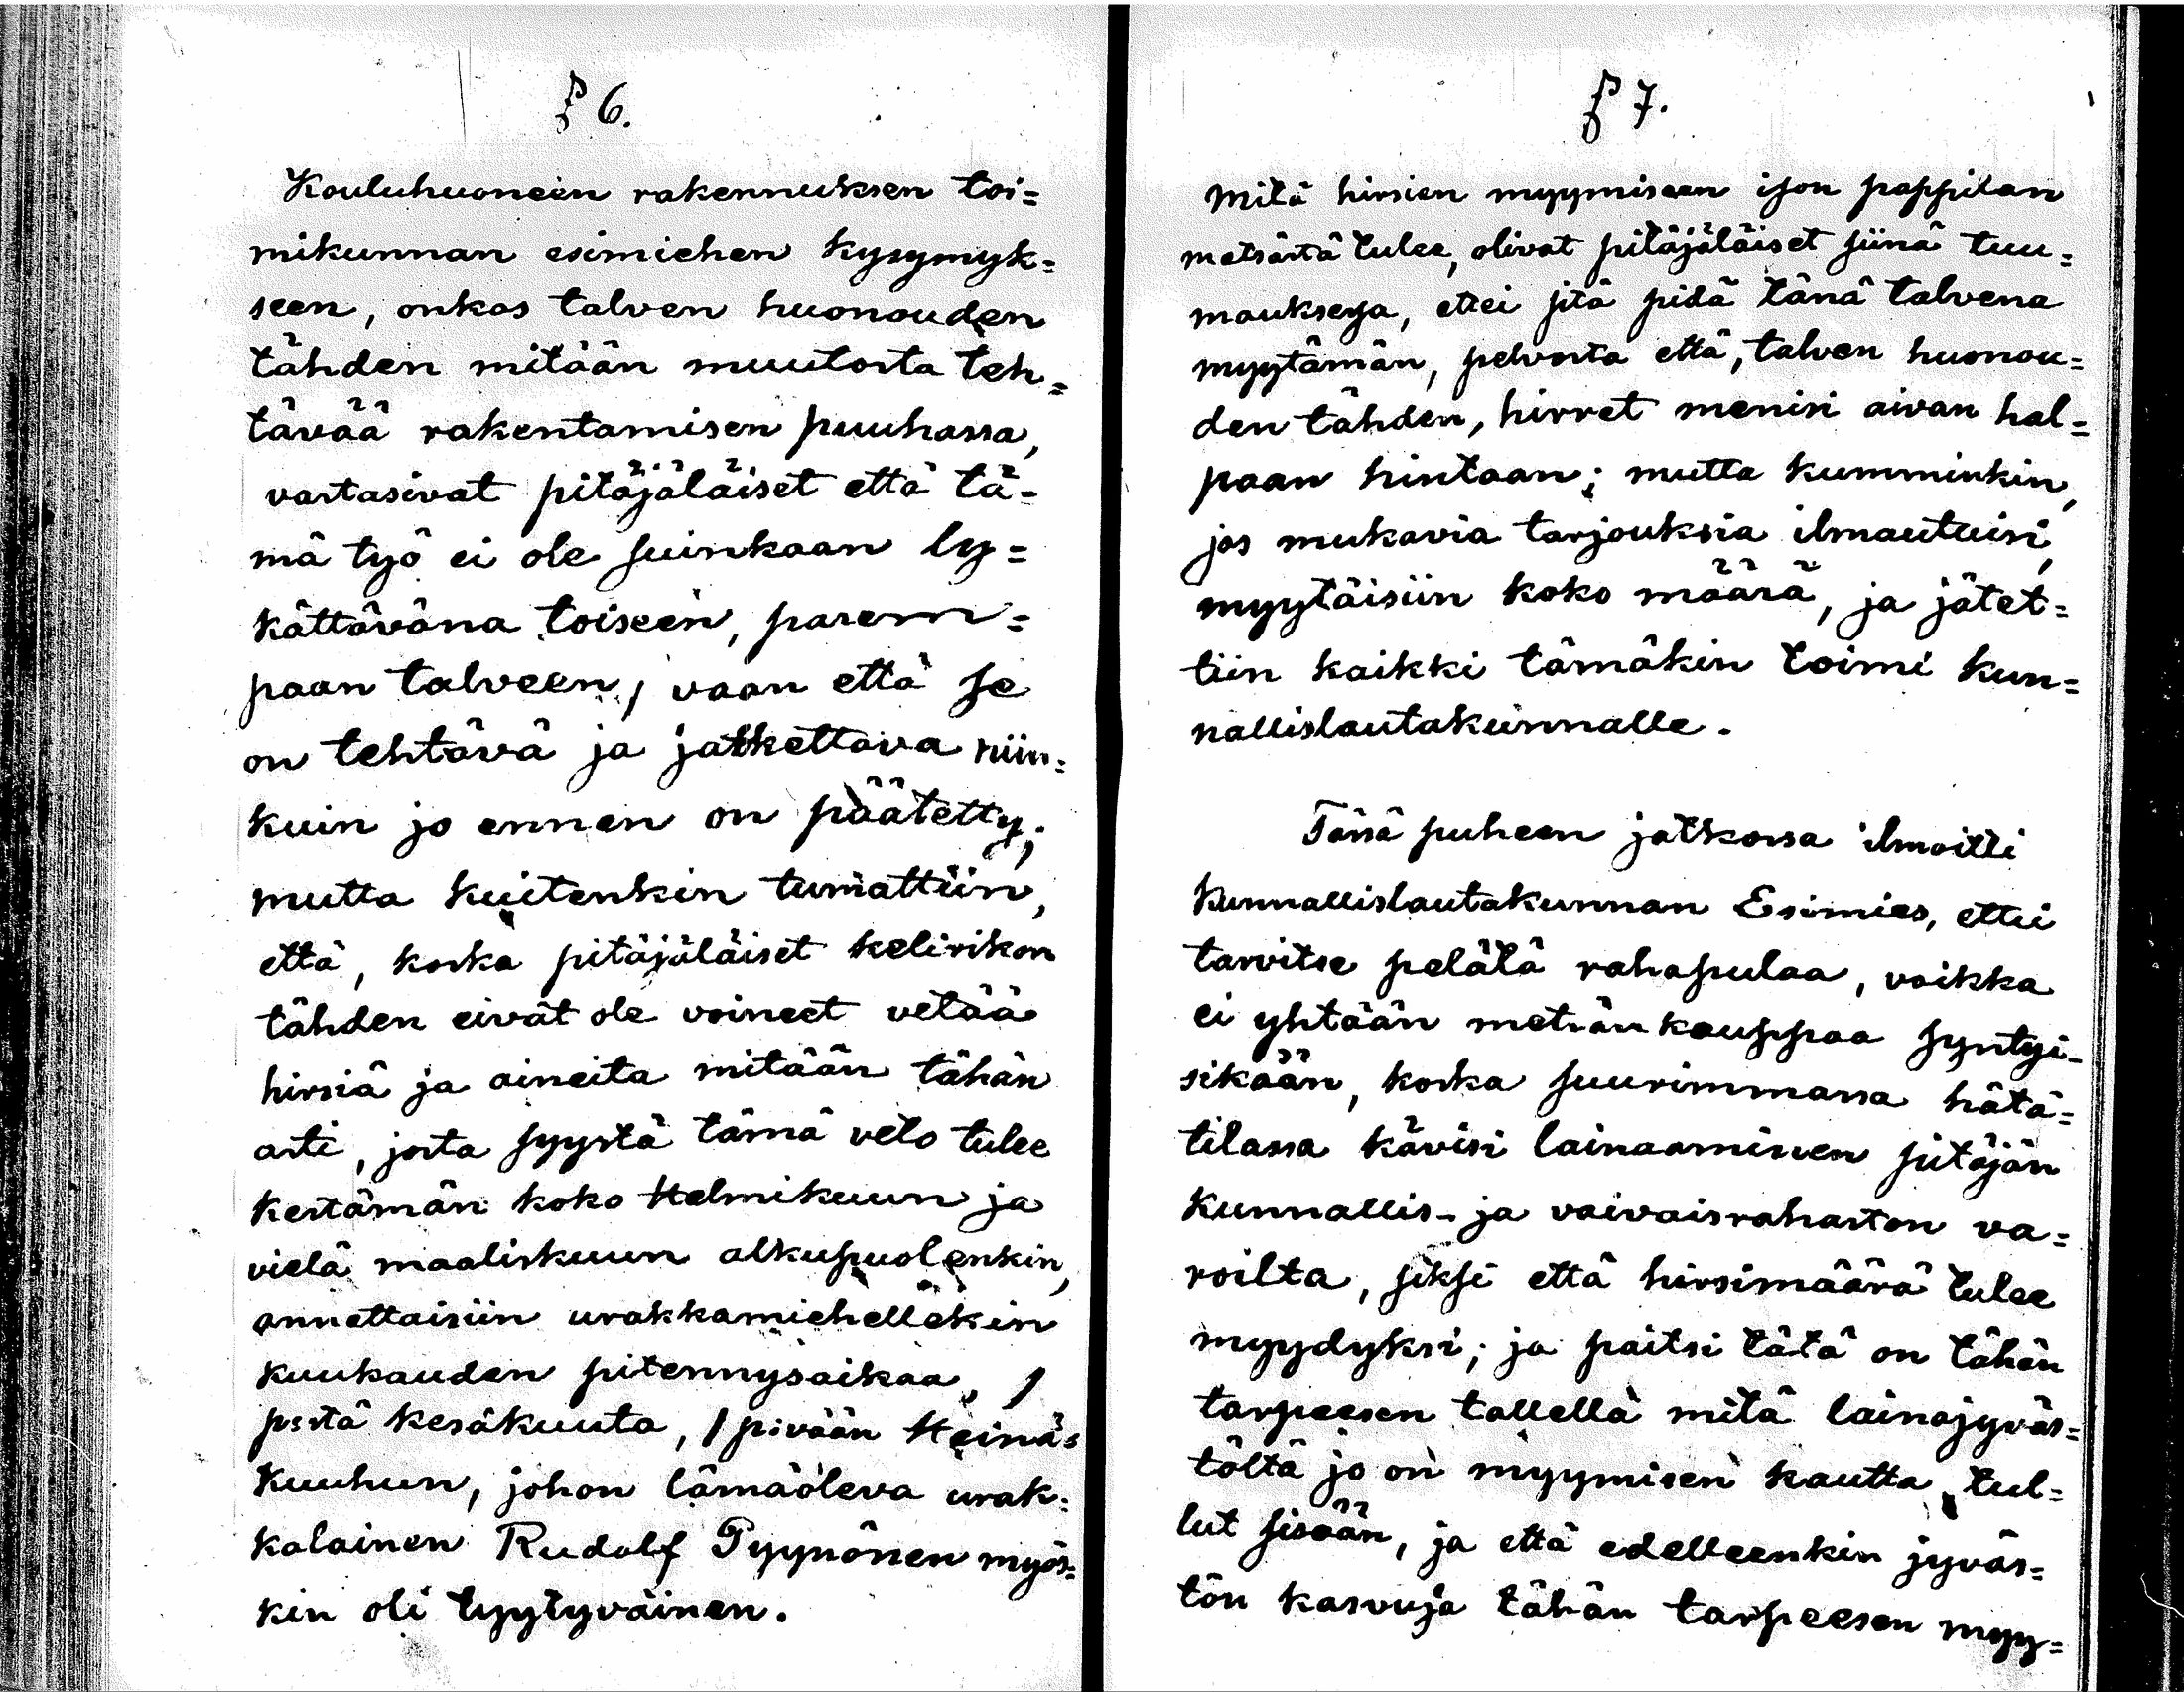 § 6.
Kouluhuoneen rakennuksen toi=
mikunnan esimiehen kysymyk=
seen, onkos talven huonouden
tähden mitään muutosta teh=
tävää rakentamisen puuhassa,
vastasivat pitäjäläiset että tä=
mä työ ei ole suinkaan ly=
kättävänä toiseen, parem=
paan talveen, vaan että se
on tehtävä ja jatkettava niin=
kuin jo ennen on päätetty;
mutta kuitenkin tumattiin,
että, koska pitäjäläiset kelirikon
tähden eivät ole voineet vetää
hirsiä ja aineita mitään tähän
asti, josta syystä tämä veto tulee
kestämän koko Helmikuun ja
vielä maaliskuun alkupuolenkin,
annettaisiin urakkamiehellekin
kuukauden pitennysaikaa, 1
p:stä kesäkuuta, 1 p:vään Heinä=
kuuhun, johon lämäoleva urak=
kalainen Rudolf Pyynönen myös=
kin oli tyytyväinen.
§ 7.
Mitä hirsien myymiseen ison pappilan
metsästä tulee, olivat pitäjäläiset siinä tuu=
mauksesa, ettei sitä pidä tänä talvena
myytämän, pelvosta että, talven huonou=
den tähden, hirret menisi aivan hal=
paan hintaan; mutta kumminkin,
jos mukavia tarjouksia ilmautuisi,
myytäisiin koko määrä, ja jätet=
tiin kaikki tämäkin toimi kun=
nallislautakunnalle.
Tässä puheen jatkossa ilmoitti
Kunnallislautakunnan Esimies, ettei
tarvitse pelätä rahapulaa, vaikka
ei yhtään metsänkauppaa syntyi-
sikään, koska suurimmassa hätä=
tilassa kävisi lainaaminen pitäjän
Kunnallis- ja vaivaisrahaston va=
roilta, siksi että hirsimäärä tulee
myydyksi; ja paitsi tätä on tähän
tarpeesen tallella mitä lainajyväs=
töltä jo on myymisen kautta tul=
lut sisään, ja että edelleenkin jyväs=
tön kasvuja tähän tarpeesen myy=